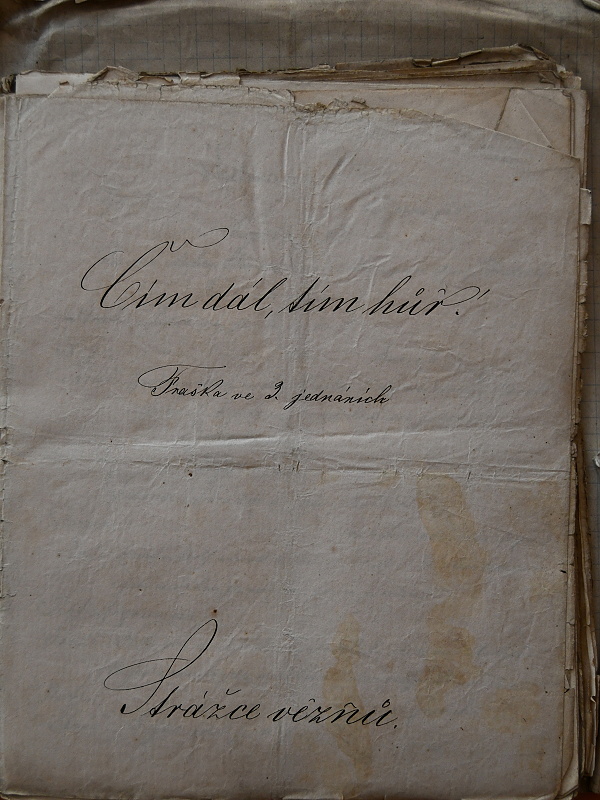 Čím dál, tím hůř!
Fraška ve 3. jednáních
Strážce vězňů.